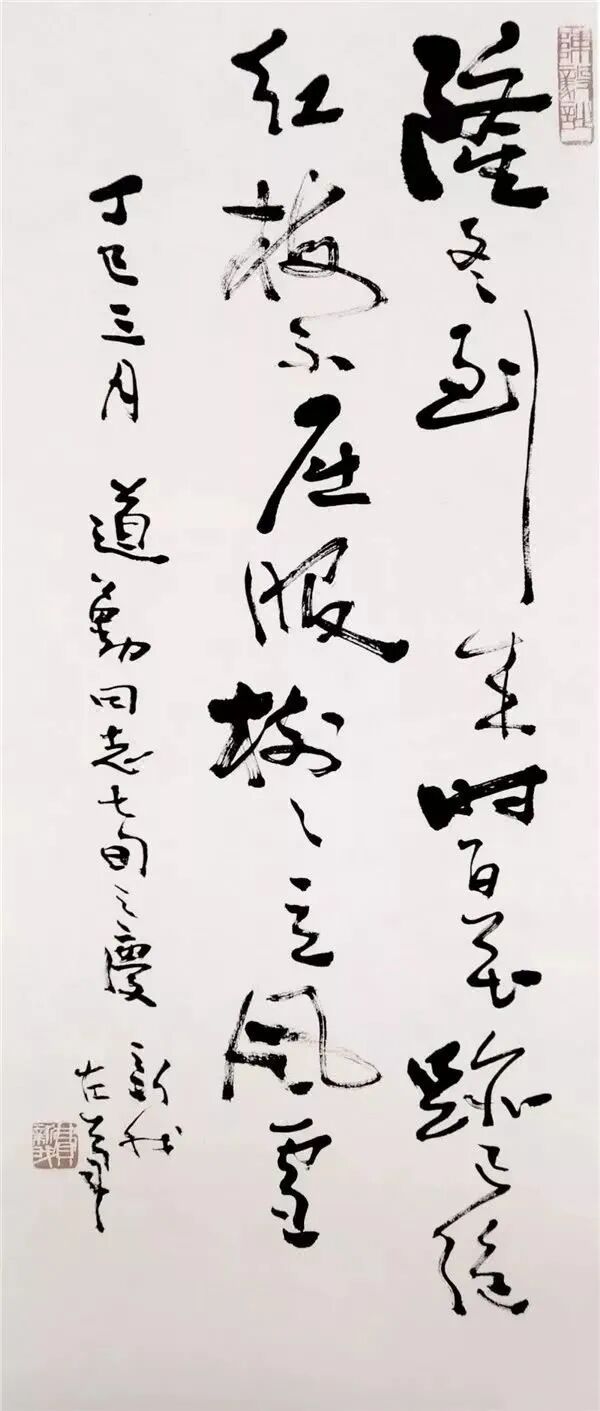 隆冬到来时百花迹已绝
红梅不屈服树树立风雪
丁巳三月 道勤同志七旬之庆
新我左笔
陈毅诗